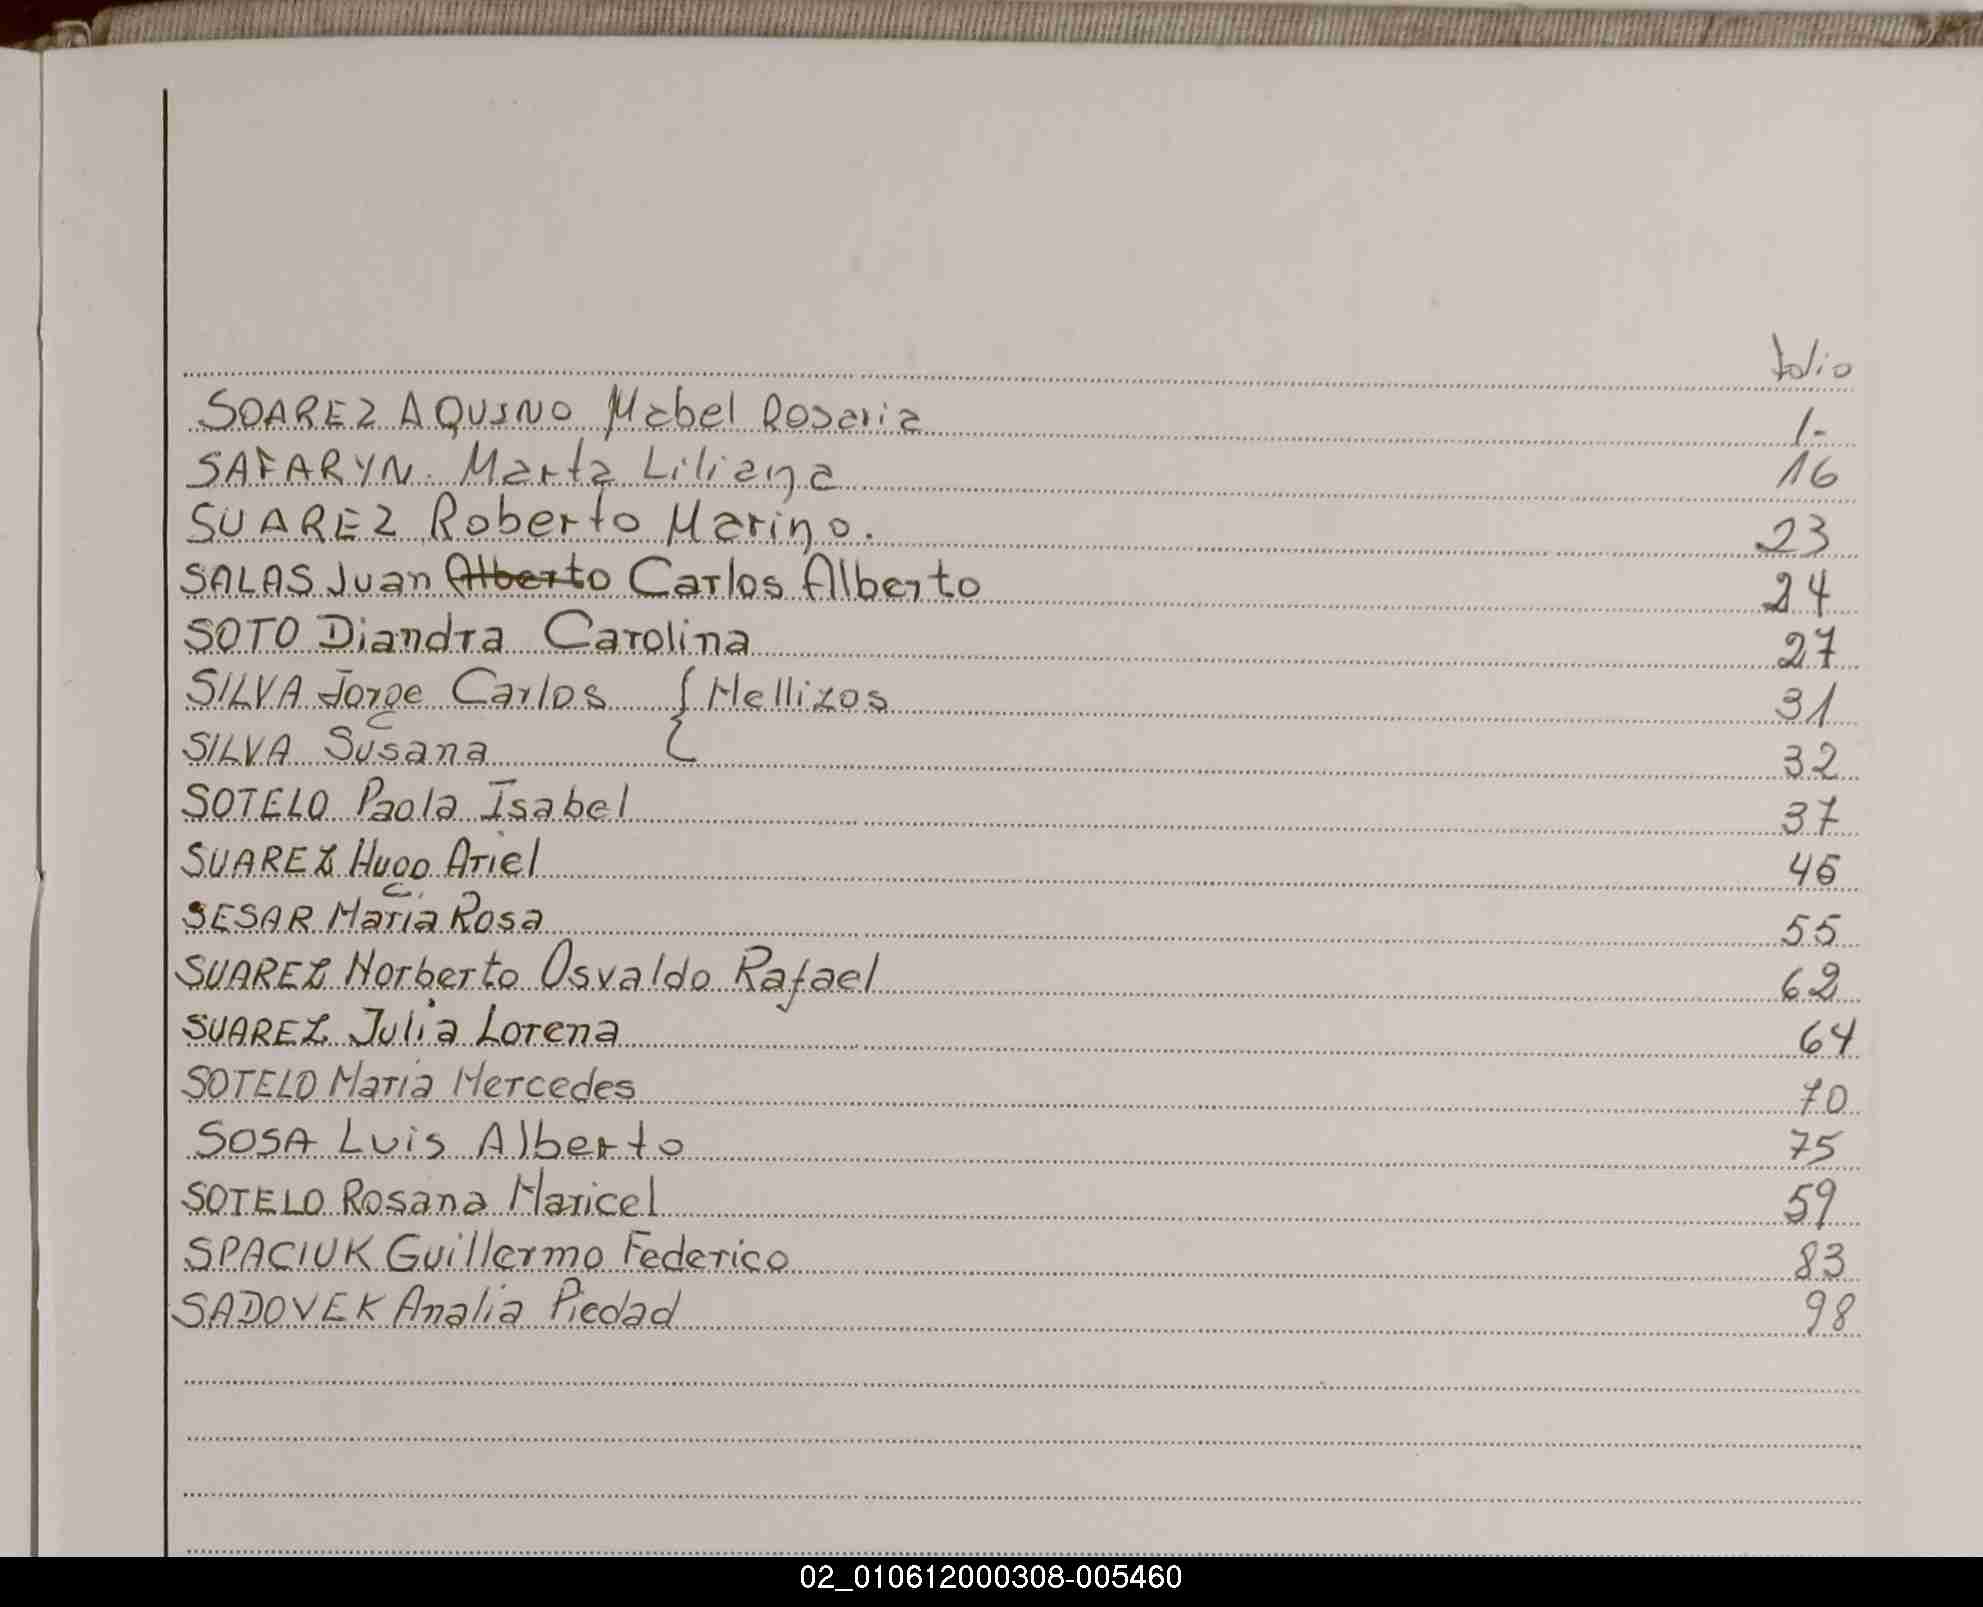 folio
SOAREZ AQUINO Mabel Rosaria 1-
SAFARYN. Marta Liliana 16
SUAREZ Roberto Marino. 23
SALAS Juan Alberto Carlos Alberto 24
SOTO Diandra Carolina 27
SILVA Jorge Carlos { Mellizos 31
SILVA Susana 32
SOTELO Paola Isabel 37
SUAREZ Hugo Ariel 45
SESAR María Rosa 55
SUAREZ Norberto Osvaldo Rafael 62
SUAREZ Julia Lorena 64
SOTELO María Mercedes 70
SOSA Luis Alberto 75
SOTELO Rosana Maricel 59
SPACIUK Guillermo Federico 83
SADOVEK Analía Piedad 98
02_010612000308-005460